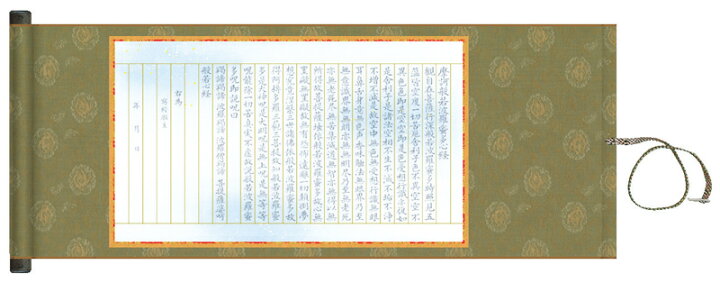 摩訶般若波羅蜜多心経
観自在菩薩行深般若波羅蜜多時照見五
蘊皆空度一切苦厄舎利子色不異空空不
異色色即是空空即是色受想行識亦復如
是舎利子是諸法空相不生不滅不垢不浄
不増不減是故空中無色無受想行識無眼
耳鼻舌身意無色声香味触法無眼界乃至
無意識界無無明亦無無明尽乃至無老死
亦無老死尽無苦集滅道無智亦無得以無
所得故菩提薩埵依般若波羅蜜多故心無
罣礙無罣礙故無有恐怖遠離一切顛倒夢
想究竟涅槃三世諸佛依般若波羅蜜多故
得阿耨多羅三藐三菩提故知般若波羅蜜
多是大神呪是大明呪是無上呪是無等等
呪能除一切苦真実不虚故説般若波羅蜜
多呪即説呪曰
羯諦 羯諦 波羅羯諦 波羅僧羯諦 菩提薩婆訶
般若心経
右為
年 月 日